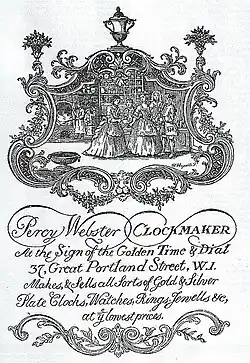 Percy Webster CLOCKMAKER
At the Sign of the Golden Time & Dial
37, Great Portland Street, W.1.
Makes, & Sells all Sorts of Gold & Silver
Plate Clocks, Watches, Rings, Jewells &c,
at yͤ lowest prices.